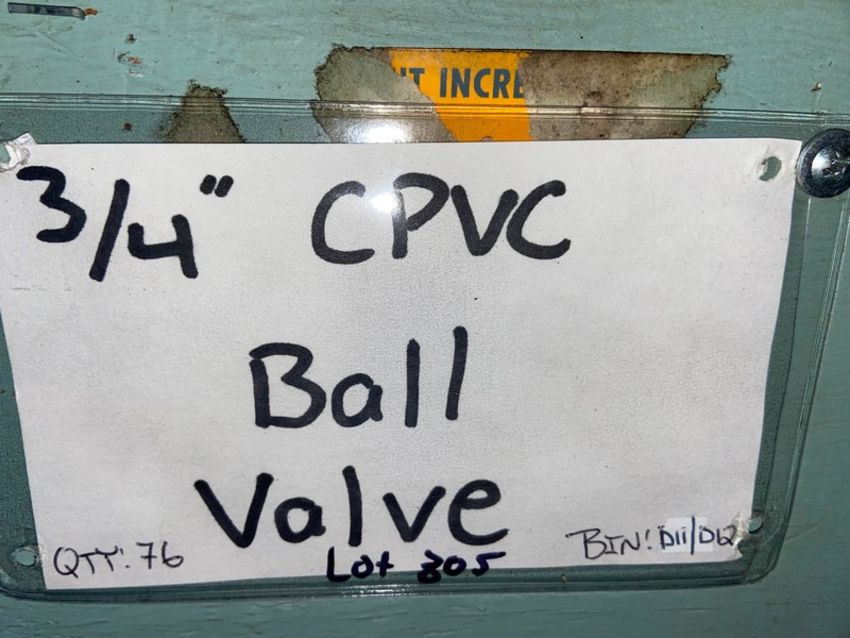 UT INCRE
3/4" CPVC
Ball
Valve
QTY: 76
Lot 305
BIN: D11/D12